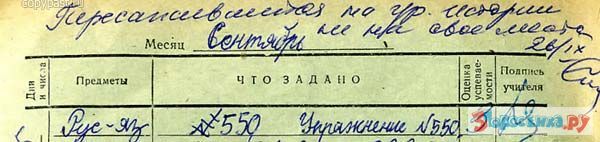 copypast.ru
Пересаживается на ур. истории
не на свое место
Месяц Сентябрь
26/IX
Дни и числа
Предметы
ЧТО ЗАДАНО
Оценка успевае-мости
Подпись учителя
Рус-яз
№550 Упражнение №550
Водогонка.ру